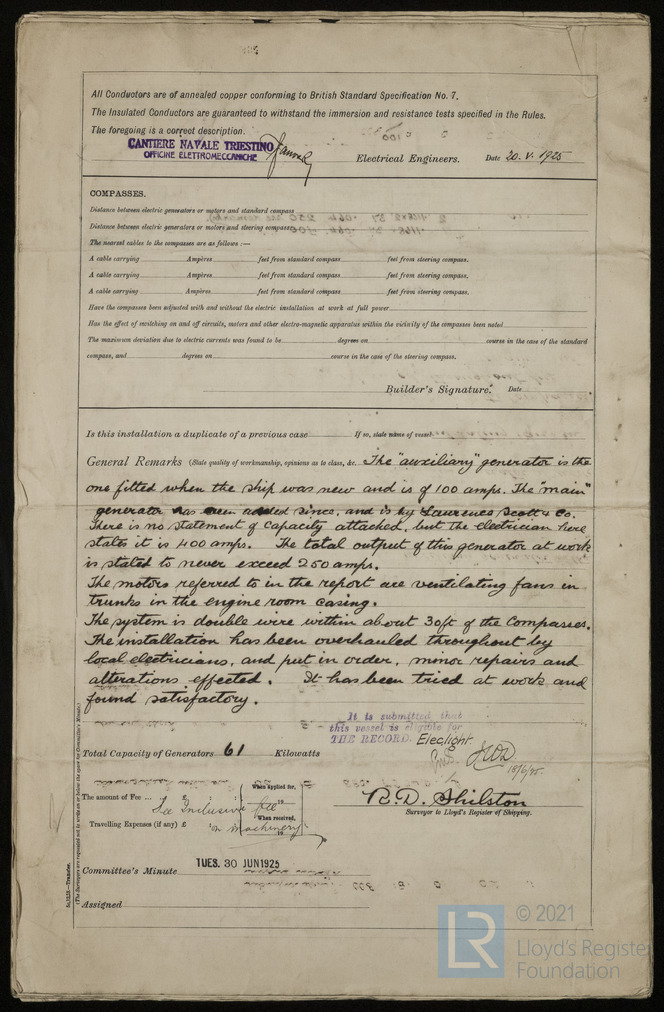 All Conductors are of annealed copper conforming to British Standard Specification No. 7.
The Insulated Conductors are guaranteed to withstand the immersion and resistance tests specified in the Rules.
The foregoing is a correct description.
CANTIERE NAVALE TRIESTINO
OFFICINE ELETTROMECCANICHE
Electrical Engineers. Date 20. V. 1925
COMPASSES.
Distance between electric generators or motors and standard compass
Distance between electric generators or motors and steering compass
The nearest cables to the compasses are as follows :—
A cable carrying Ampères feet from standard compass feet from steering compass.
A cable carrying Ampères feet from standard compass feet from steering compass.
A cable carrying Ampères feet from standard compass feet from steering compass.
Have the compasses been adjusted with and without the electric installation at work at full power
Has the effect of switching on and off circuits, motors and other electro-magnetic apparatus within the vicinity of the compasses been noted
The maximum deviation due to electric currents was found to be degrees on course in the case of the standard
compass, and degrees on course in the case of the steering compass.
Builder's Signature. Date
Is this installation a duplicate of a previous case If so, state name of vessel
General Remarks (State quality of workmanship, opinions as to class, &c. The "auxiliary" generator is the
one fitted when the ship was new and is of 100 amps. The "main"
generator has been added since, and is by Laurence Scott & Co.
There is no statement of capacity attached, but the electrician here
states it is 400 amps. The total output of this generator at work
is stated to never exceed 250 amps.
The motors referred to in the report are ventilating fans in
trunks in the engine room casing.
The system is double wire within about 30ft of the Compasses.
The installation has been overhauled throughout by
local electricians, and put in order, minor repairs and
alterations effected. It has been tried at work and
found satisfactory.
It is submitted that
this vessel is eligible for
THE RECORD. Elec. light.
18/6/25
Total Capacity of Generators 61 Kilowatts
The amount of Fee ... £ : : When applied for,
Fee Inclusive fee 19
R.D. Shilston
Surveyor to Lloyd's Register of Shipping.
Travelling Expenses (if any) £ When received,
on machinery 19
Committee's Minute TUES. 30 JUN 1925
Assigned
(The Surveyors are requested not to write on or below the space for Committee's Minute.)
LR
© 2021
Lloyd's Register
Foundation